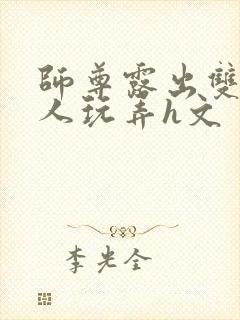 師尊露出雙
人玩弄h文
李光全